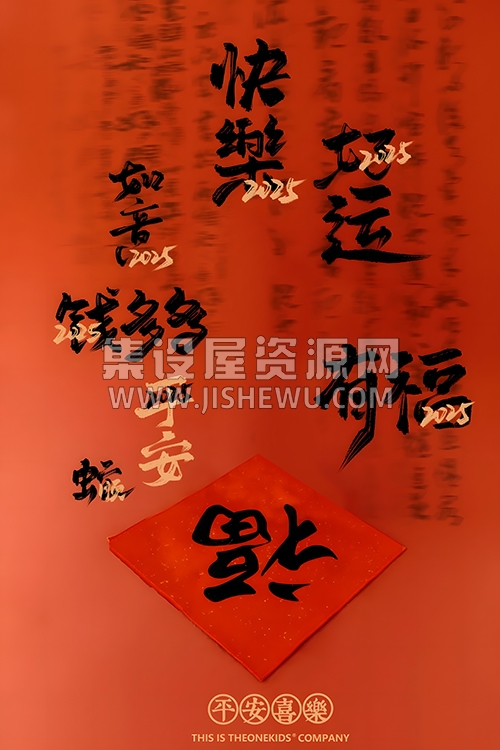 快樂
2025
好运
2025
如意
2025
钱多多
2025
集设屋资源网
WWW.JISHEWU.COM
平安
2025
有福
2025
福
平安喜樂
THIS IS THEONEKIDS® COMPANY